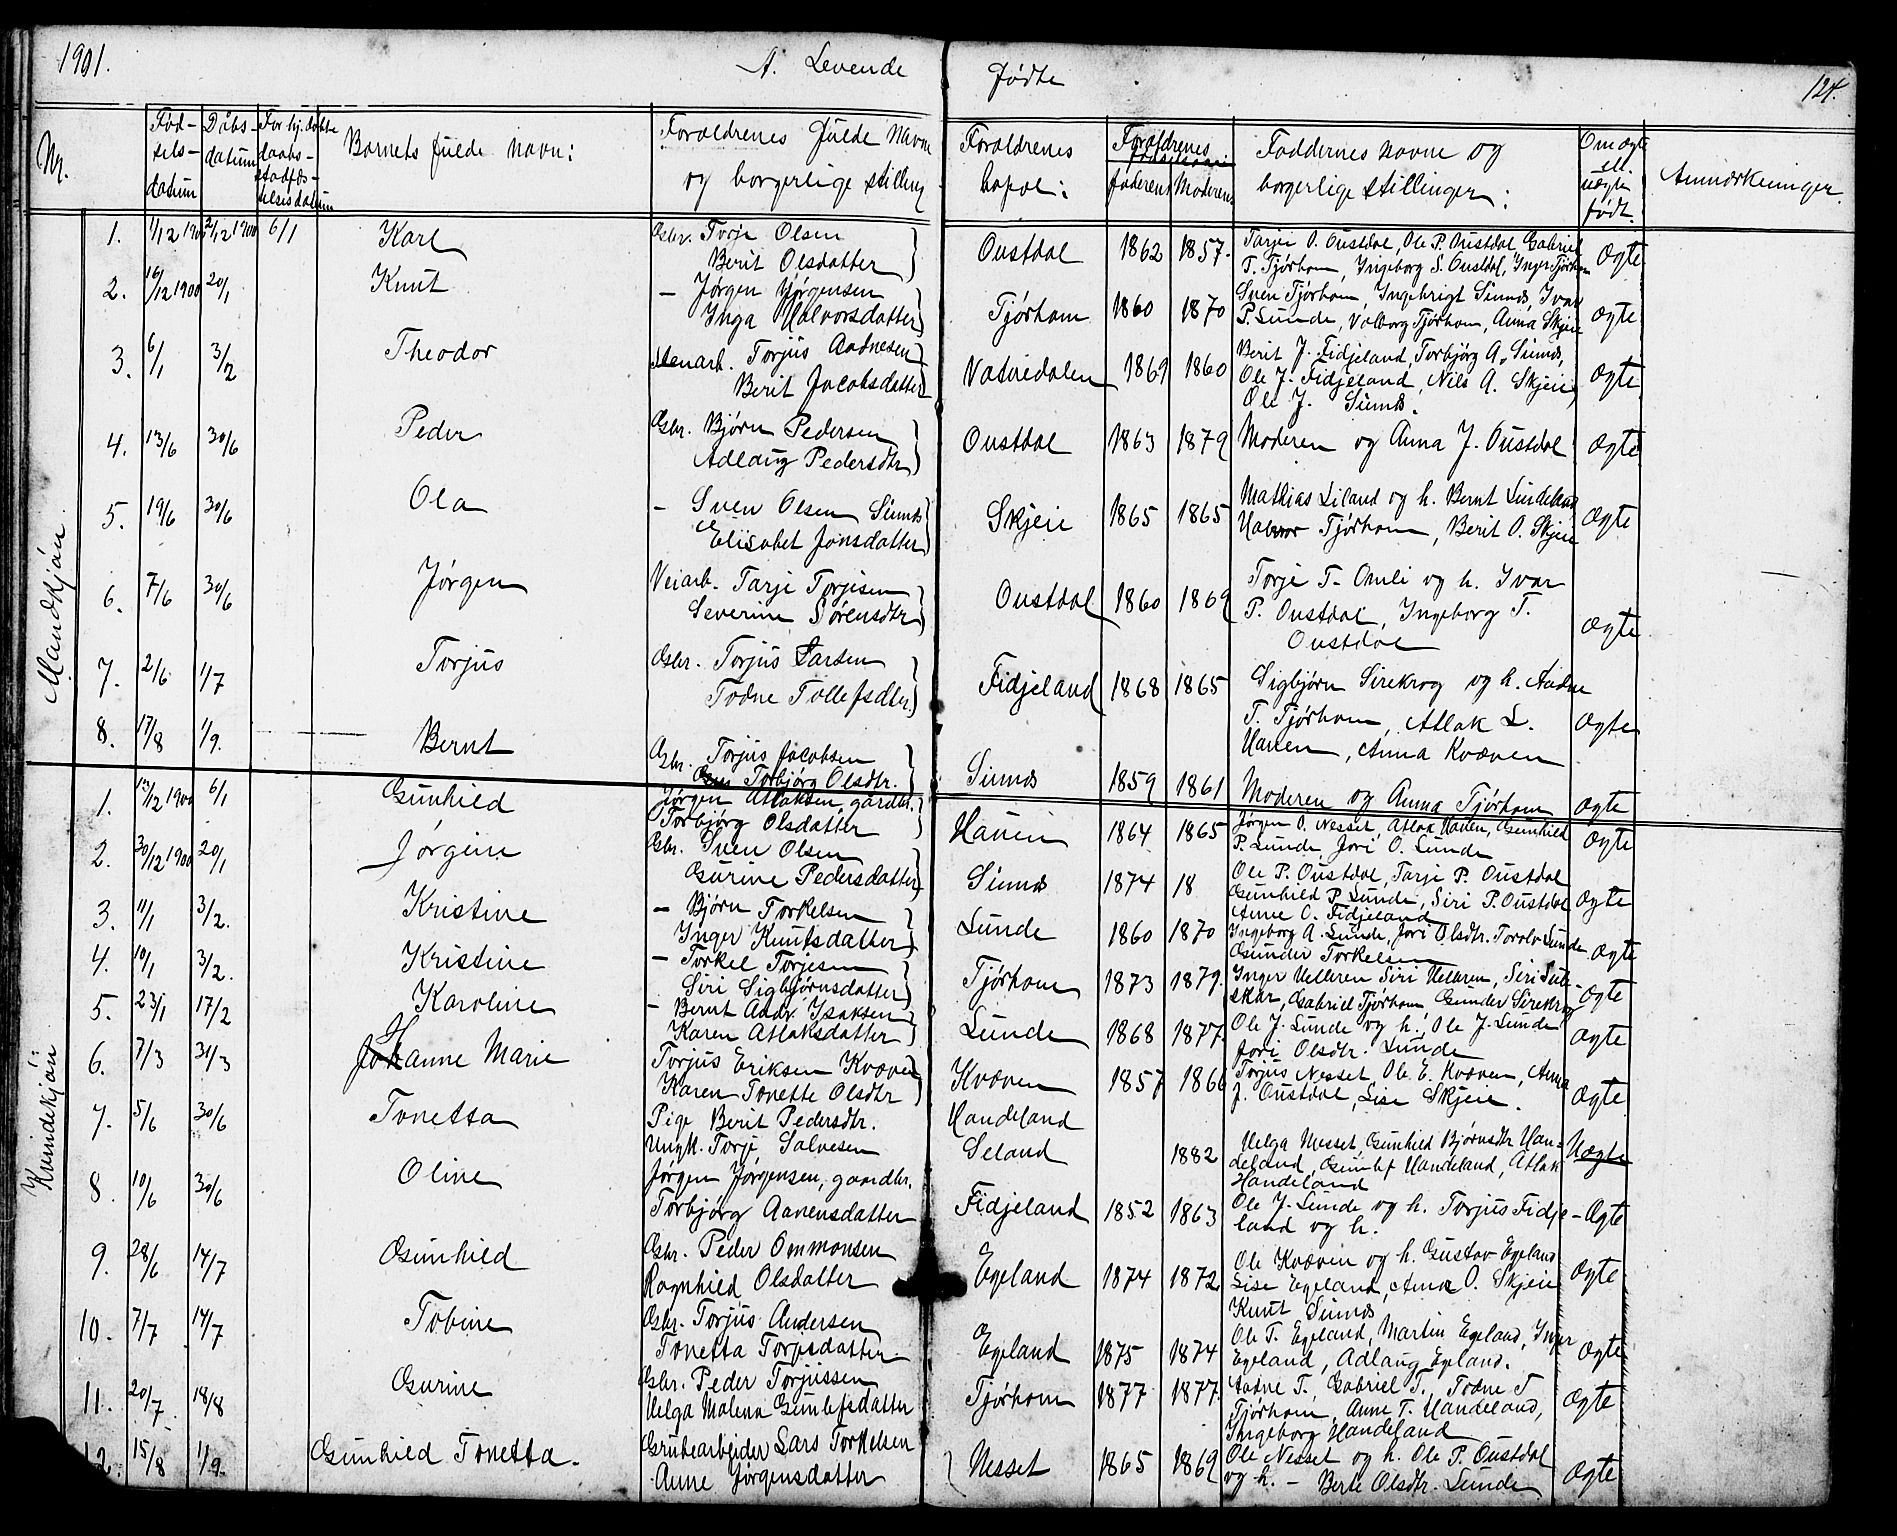 1901. A. Levende Fødte 124.
Nr. Fød-sels-datum Dåbs-datum For hj.døbte daabs-stadfæs-telsesdatum Barnets fulde navn: Forældrenes fulde navn og borgerlige stilling Forældrenes bopæl: Forældrenes fødselsaar Faderens Moderens Faddernes navne og borgerlige stillinger: Om ægte ell. uægte født. Anmærkninger.
Mandkjøn.
1. 1/12 1900 21/12 1900 6/1 Karl Gbr. Torje Olsen
Berit Olsdatter Oustdal 1862 1857. Tarjei O. Oustdal, Ole P. Oustdal Gabriel
T. Tjørhom, Ingeborg S. Oustdal, Inger Tjørhom Ægte
2. 16/12 1900 20/1 Knut — Jørgen Jørgensen
Inga Halvorsdatter Tjørhom 1860 1870 Sven Tjørhom, Ingebrigt Sinnes, Ivar
P. Lunde, Valborg Tjørhom, Anna Skjeie Ægte
3. 6/1 3/2 Theodor Stenarb. Torjus Aadnesen
Berit Jacobsdatter Vatnedalen 1869 1860 Berit J. Fidjeland, Torbjørg A. Sinnes,
Ole J. Fidjeland, Nils A. Skjeie,
Ole J. Sinnes. Ægte
4. 13/6 30/6 Peder Gbr. Bjørn Pedersen
Adlaug Pedersdtr Oustdal 1863 1879 Moderen og Anna J. Oustdal Ægte
5. 19/6 30/6 Ola — Sven Olsen Sinnes
Elisabet Jonsdatter Skjeie 1865 1865 Mathias Liland og h. Bernt Lindeland
Halvor Tjørhom, Berit O. Skjeie Ægte
6. 7/6 30/6 Jørgen Veiarb. Tarje Torjisen
Severine Sørensdtr Oustdal 1860 1869 Torje T. Omli og h. Ivar
P. Oustdal, Ingeborg T.
Oustdal Ægte
7. 2/6 1/7 Torjus Gbr. Torjus Larsen
Todne Tollefsdter. Fidjeland 1868 1865 Sigbjørn Sirekrog og h. Aadne
T. Tjørhom, Atlak L.
Hauen, Anna Kvæven Ægte
8. 17/8 1/9. Bernt Gbr. Torjus Jacobsen
Torbjørg Olsdtr. Sinnes 1859 1861 Moderen og Anna Tjørhom Ægte
Kvindekjøn:
1. 13/12 1900 6/1 Gunhild Jørgen Atlaksen gaardbr.
Torbjørg Olsdatter Hauen 1864 1865 Jørgen O. Nesset, Atlak Hauen, Gunhild
P. Lunde, Jori O. Lunde Ægte
2. 30/12 1900 20/1 Jørgine Gbr. Sven Olsen
Gurine Pedersdatter Sinnes 1874 18 Ole P. Oustdal, Tarje P. Oustdal
Gunhild P. Lunde, Siri P. Oustdal
Anne O. Fidjeland Ægte
3. 11/1 3/2. Kristine — Bjørn Torkelsen
Inger Knutsdatter Lunde 1860 1870 Ingeborg A. Lunde, Jori Olsdtr. Torolv Lunde
Gunder Torkelsen Ægte
4. 10/1 3/2. Kristine — Torkel Torjesen
Siri Sigbjørnsdatter Tjørhom 1873 1879. Inger Helleren Siri Helleren, Siri Sut-
skar, Gabriel Tjørhom Gunder Sirekrog Ægte
5. 23/1 17/2 Karoline — Bernt Andr. Isaksen
Karen Atlaksdatter Lunde 1868 1877. Ole J. Lunde og h. Ole J. Lunde
Jori Olsdtr. Lunde Ægte
6. 7/3 31/3 Johanne Marie Torjus Eriksen Kvæven
Karen Tonette Olsdtr Kvæven 1857 1866 Torjus Nesset, Ole E. Kvæven, Anna
J. Oustdal, Lise Skjeie. Ægte
7. 5/6 30/6 Tonetta Pige Berit Pedersdtr.
Ungk. Torje Salvesen Handeland
Seland 1882 Helga Nesset, Gunhild Bjørnsdtr Han-
deland, Gunlef Handeland, Atlak
Handeland Uægte
8. 10/6 30/6 Oline Jørgen Jørgensen, gaardbr.
Torbjørg Aanensdatter Fidjeland 1852 1863 Ole J. Lunde og h. Torjus Fidje-
land og h. Ægte
9. 28/6 14/7 Gunhild Gbr. Peder Ommonsen
Ragnhild Olsdatter Egeland 1874 1872 Ole Kvæven og h. Gustav Egeland
Lise Egeland, Anna O. Skjeie
Knut Sinnes Ægte
10. 7/7 14/7 Tobine Gbr. Torjus Andersen
Tonetta Torjusdatter Egeland 1875 1874 Ole T. Egeland, Martin Egeland, Inger
Egeland, Adlaug Egeland. Ægte
11. 20/7. 18/8 Gurine Gbr. Peder Torjussen
Helga Malena Gunlefsdatter Tjørhom 1877 1877. Aadne T., Gabriel T., Todne T
Tjørhom, Anne T. Handeland,
Ingeborg Handeland Ægte
12. 15/8 1/9. Gunhild Tonetta. Grubearbeider Lars Torkelsen
Anne Jørgensdatter Nesset 1865 1869 Ole Nesset og h. Ole P. Oustdal
og h. — Berte Olsdtr. Lunde Ægte